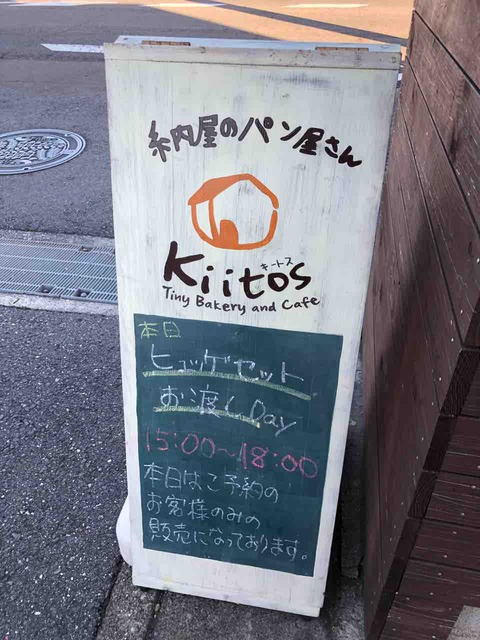 納屋のパン屋さん
Kiitos
キートス
Tiny Bakery and Cafe
本日
ヒュッゲセット
お渡しDay
15:00〜18:00
本日はご予約の
お客様のみの
販売になっております。